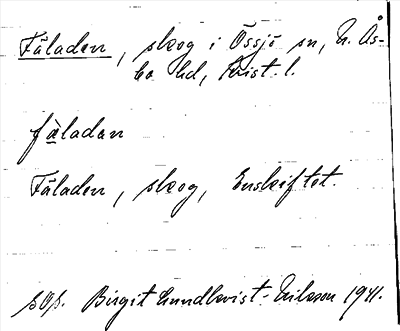 Fäladen, skog i Össjö sn, N. Ås-
bo hd, Krist. l.
fäladan
Fäladen, skog, Enskiftet.
Birgit Lundkvist-Eriksson 1941.